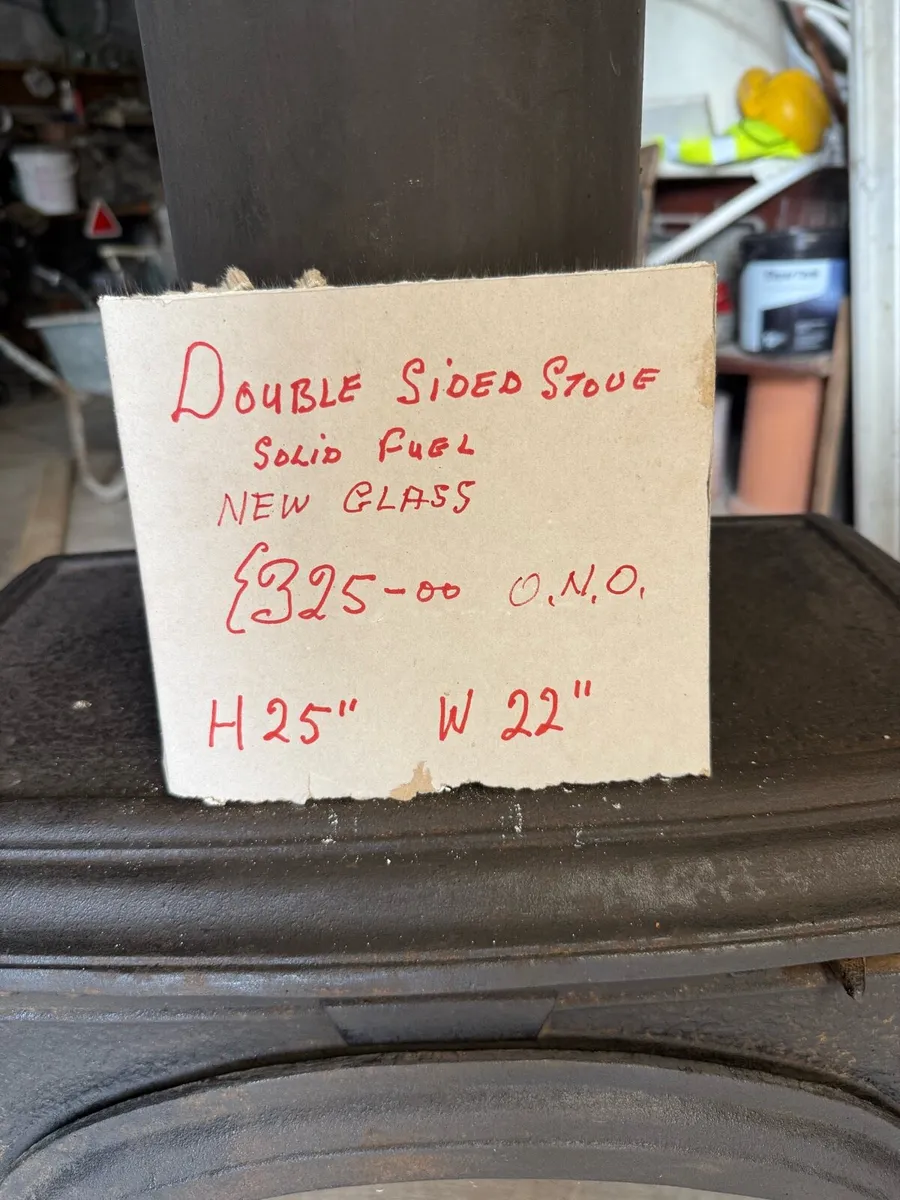 DOUBLE SIDED STOVE
SOLID FUEL
NEW GLASS
£325-00 O.N.O.
H 25" W 22"